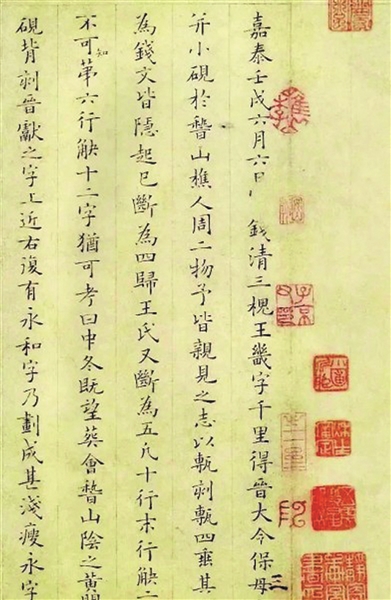 嘉泰壬戌六月六日錢清三槐王畿字千里得晉大令保母
并小硯於稽山樵人周二物予皆親見之志以甎刻甎四垂其
為錢文皆隱起已斷為四歸王氏又斷為五凡十行末行缺二
不可知第六行缺十二字猶可考曰中冬既望葬會稽山陰之黃
硯背刻晉獻之字上近右復有永和字乃劃成甚淺瘦永字
三